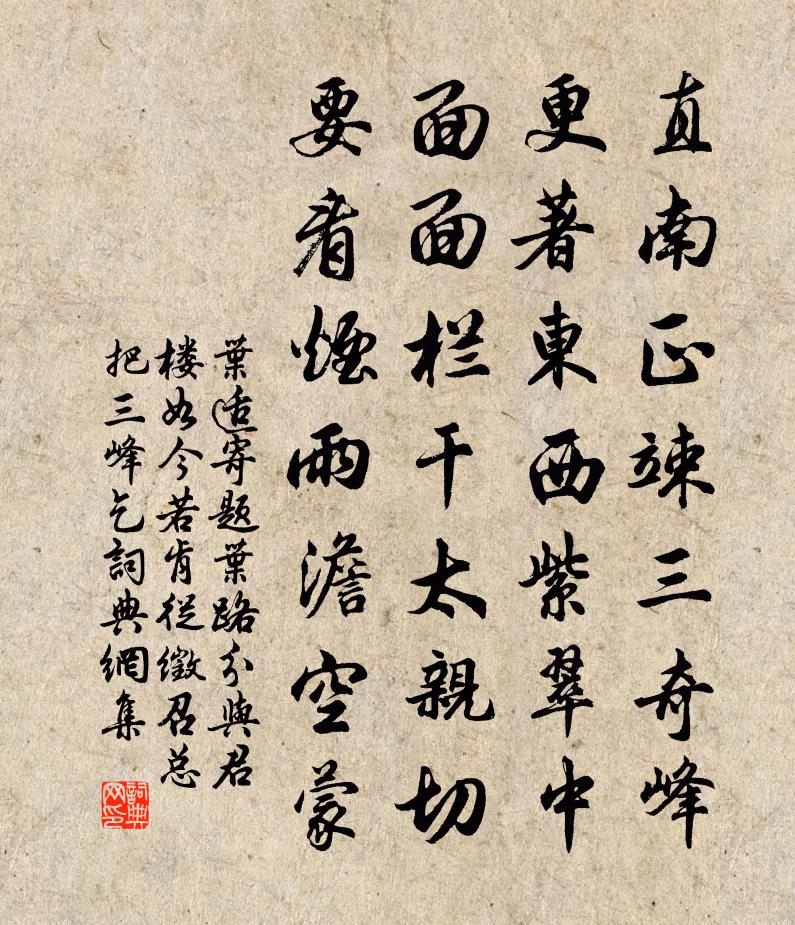 直南正竦三奇峰
更著東西紫翠中
面面栏干太親切
要看煙雨澹空蒙
葉适寄题葉路分與君
楼如今若肯從徵召总
把三峰乞詞典網集
詞典
网印